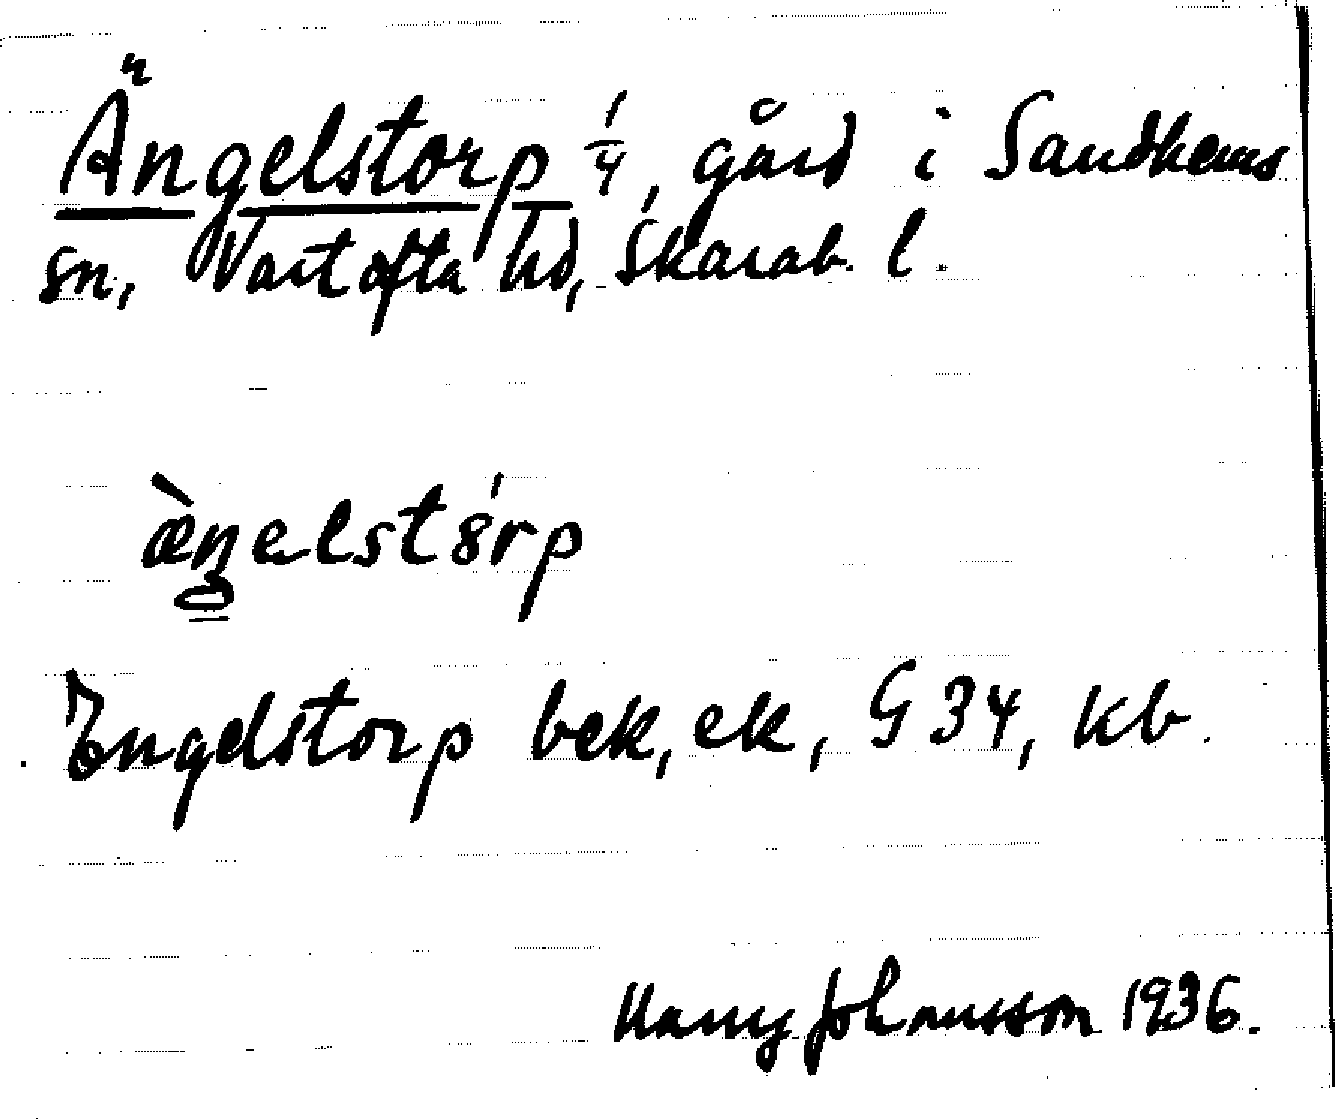 Ängelstorp 1/4, gård i Sandhems
sn, Vartofta hd, Skarab. l.
æ̀ŋelstȣ́rp
Engelstorp bek, ek, G 34, kb.
Harry Johnsson 1936.